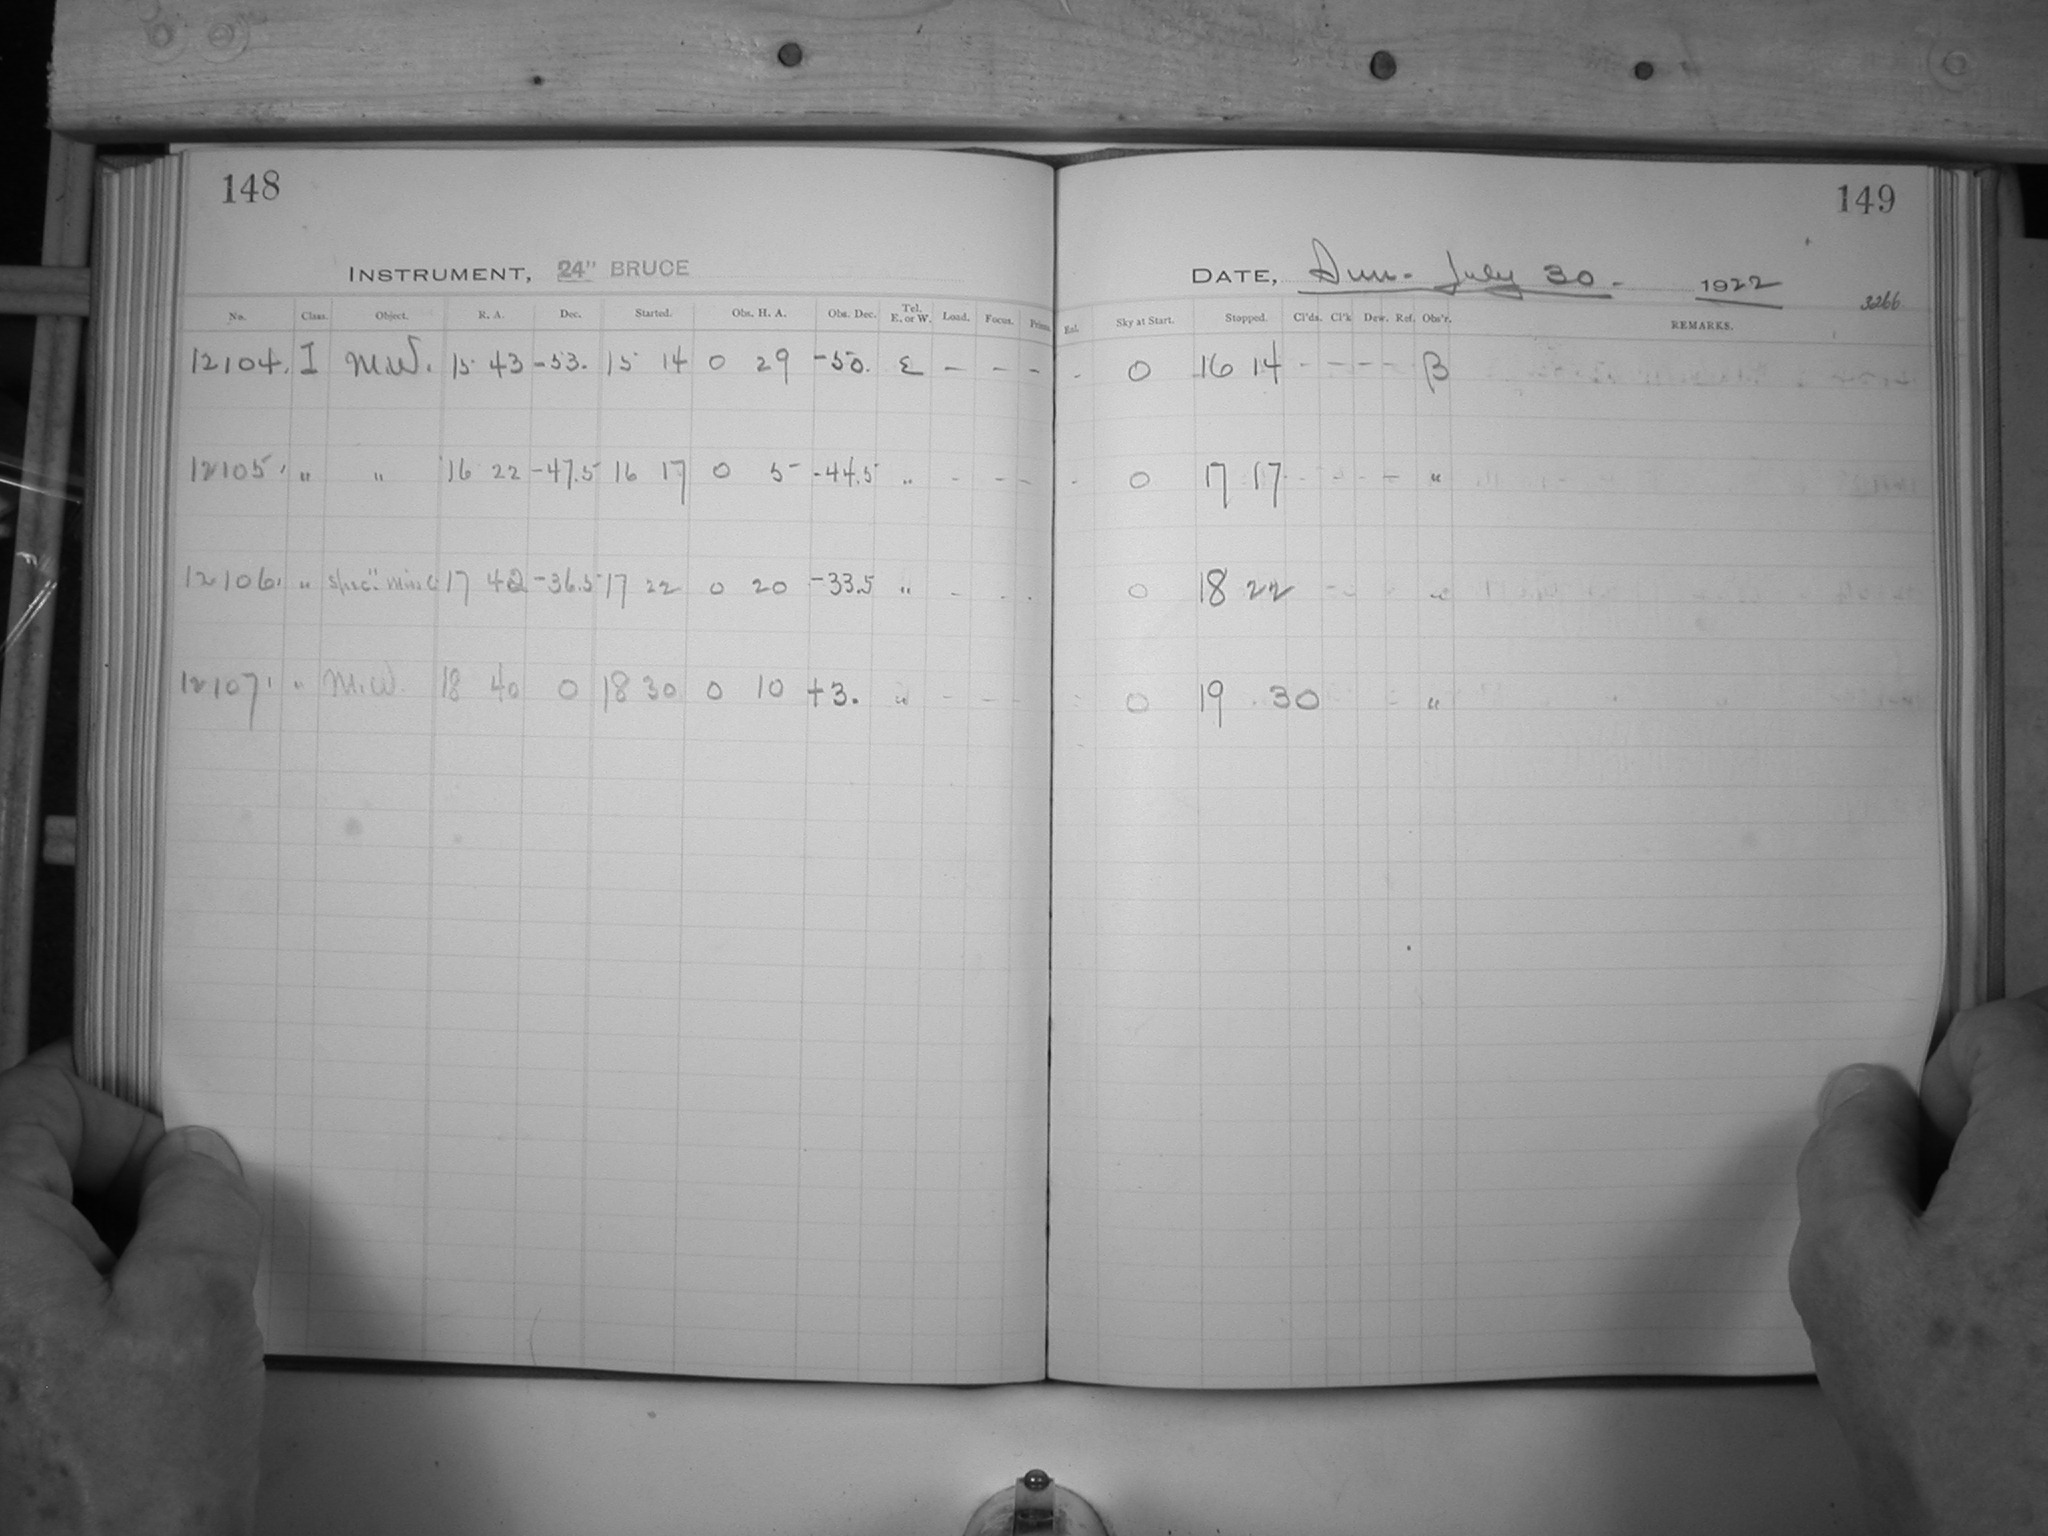 148
INSTRUMENT, 24" BRUCE
No. Class. Object. R. A. Dec. Started. Obs. H. A. Obs. Dec. Tel. E. or W. Load. Focus. Prisms.
12104. I M.W. 15 43 -53. 15 14 0 29 -50. E - - -
12105 " " 16 22 -47.5 16 17 0 5 -44.5 " - - -
12106 " 17 42 -36.5 17 22 0 20 -33.5 " - - -
12107 " M.W. 18 40 0 18 30 0 10 +3. " - - -
149
DATE, Sun. July 30. 1922
3266
Exl. Sky at Start. Stopped. Cl'ds. Cl'k Dew. Ref. Obs'r. REMARKS.
- 0 16 14 - - - - β
- 0 17 17 - - - - "
0 18 22 - - - "
0 19 30 - "